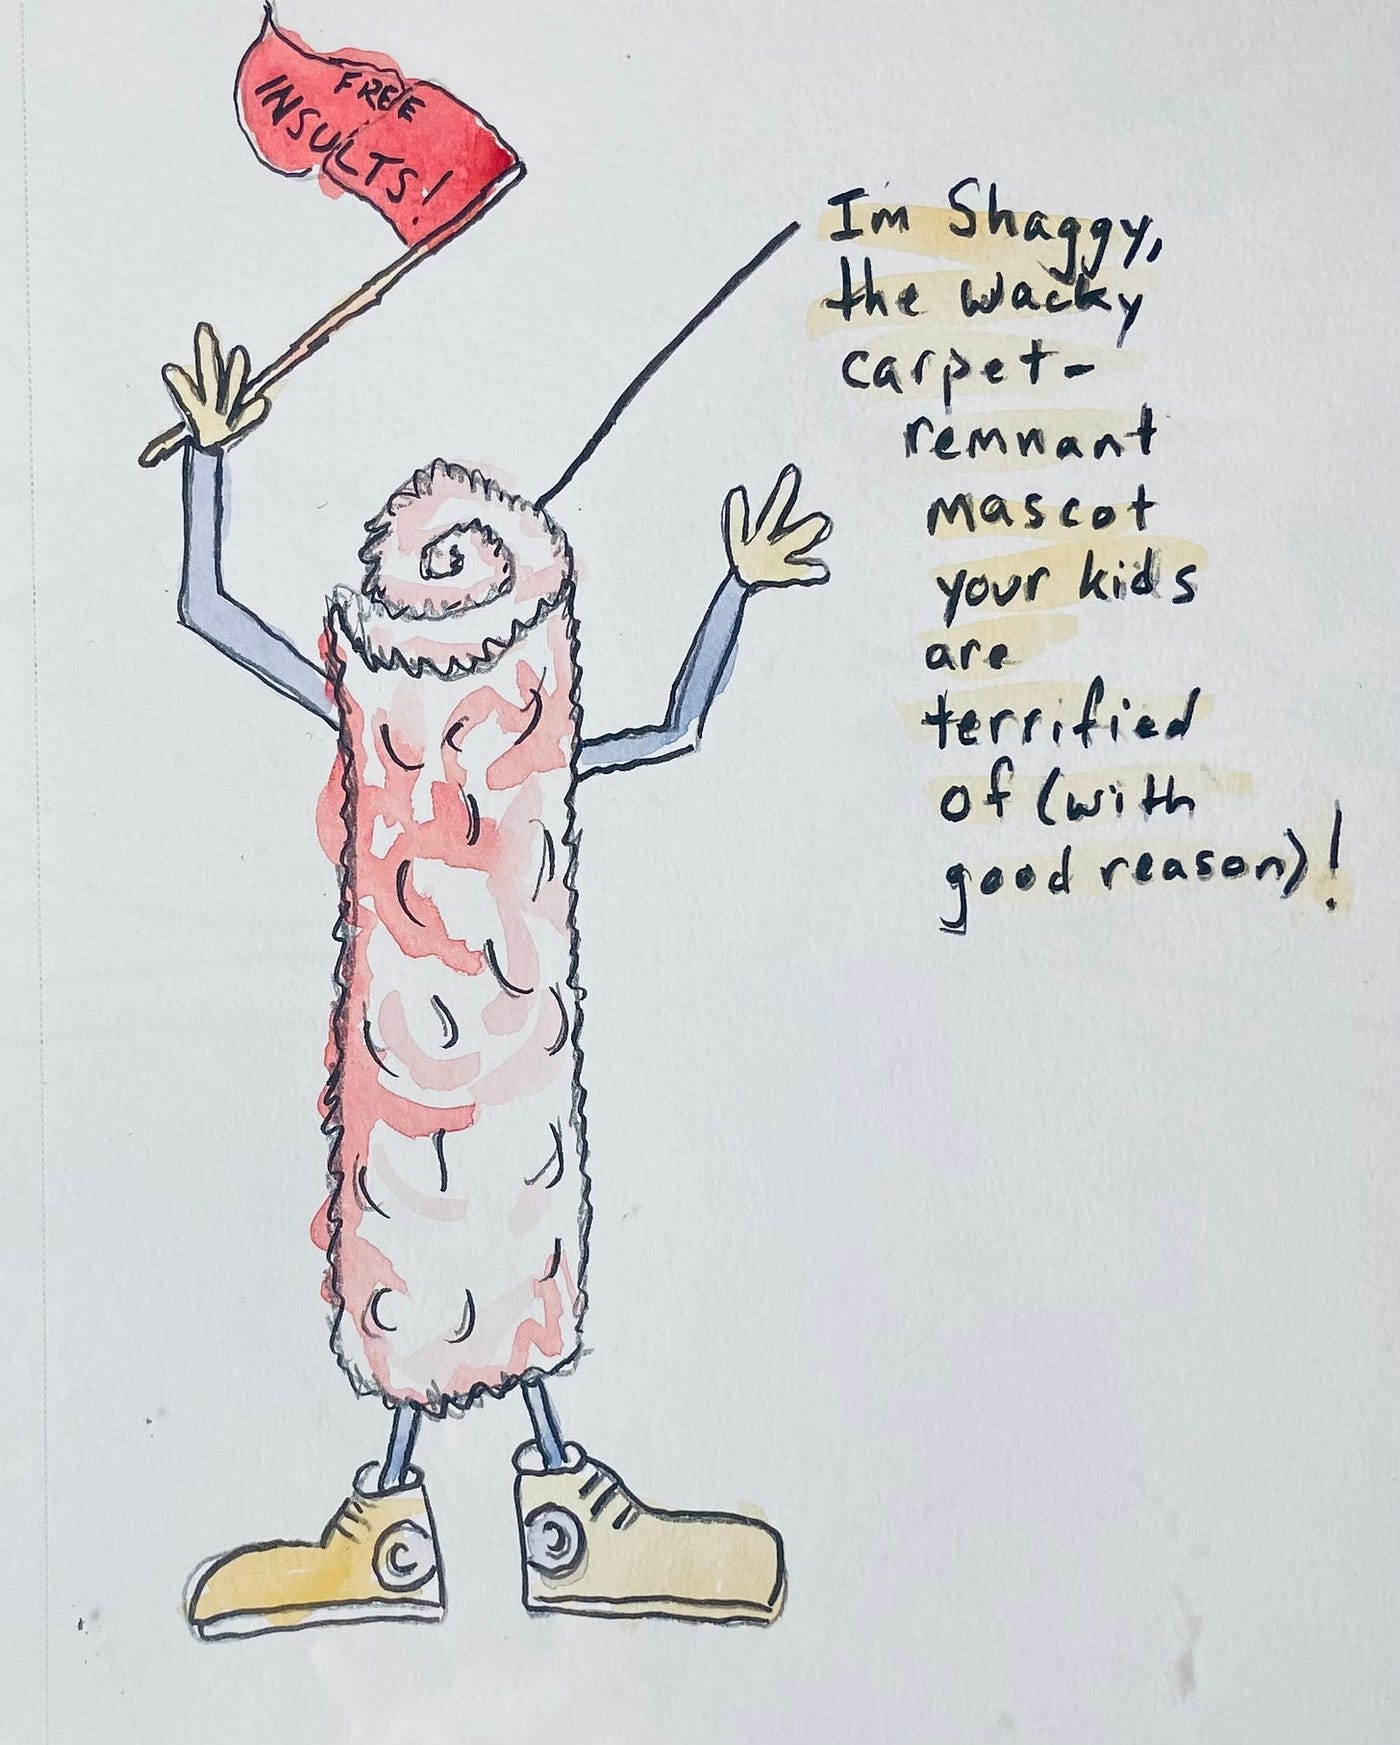 FREE
INSULTS!
I'm Shaggy,
the wacky
carpet-
remnant
mascot
your kids
are
terrified
of (with
good reason)!
C